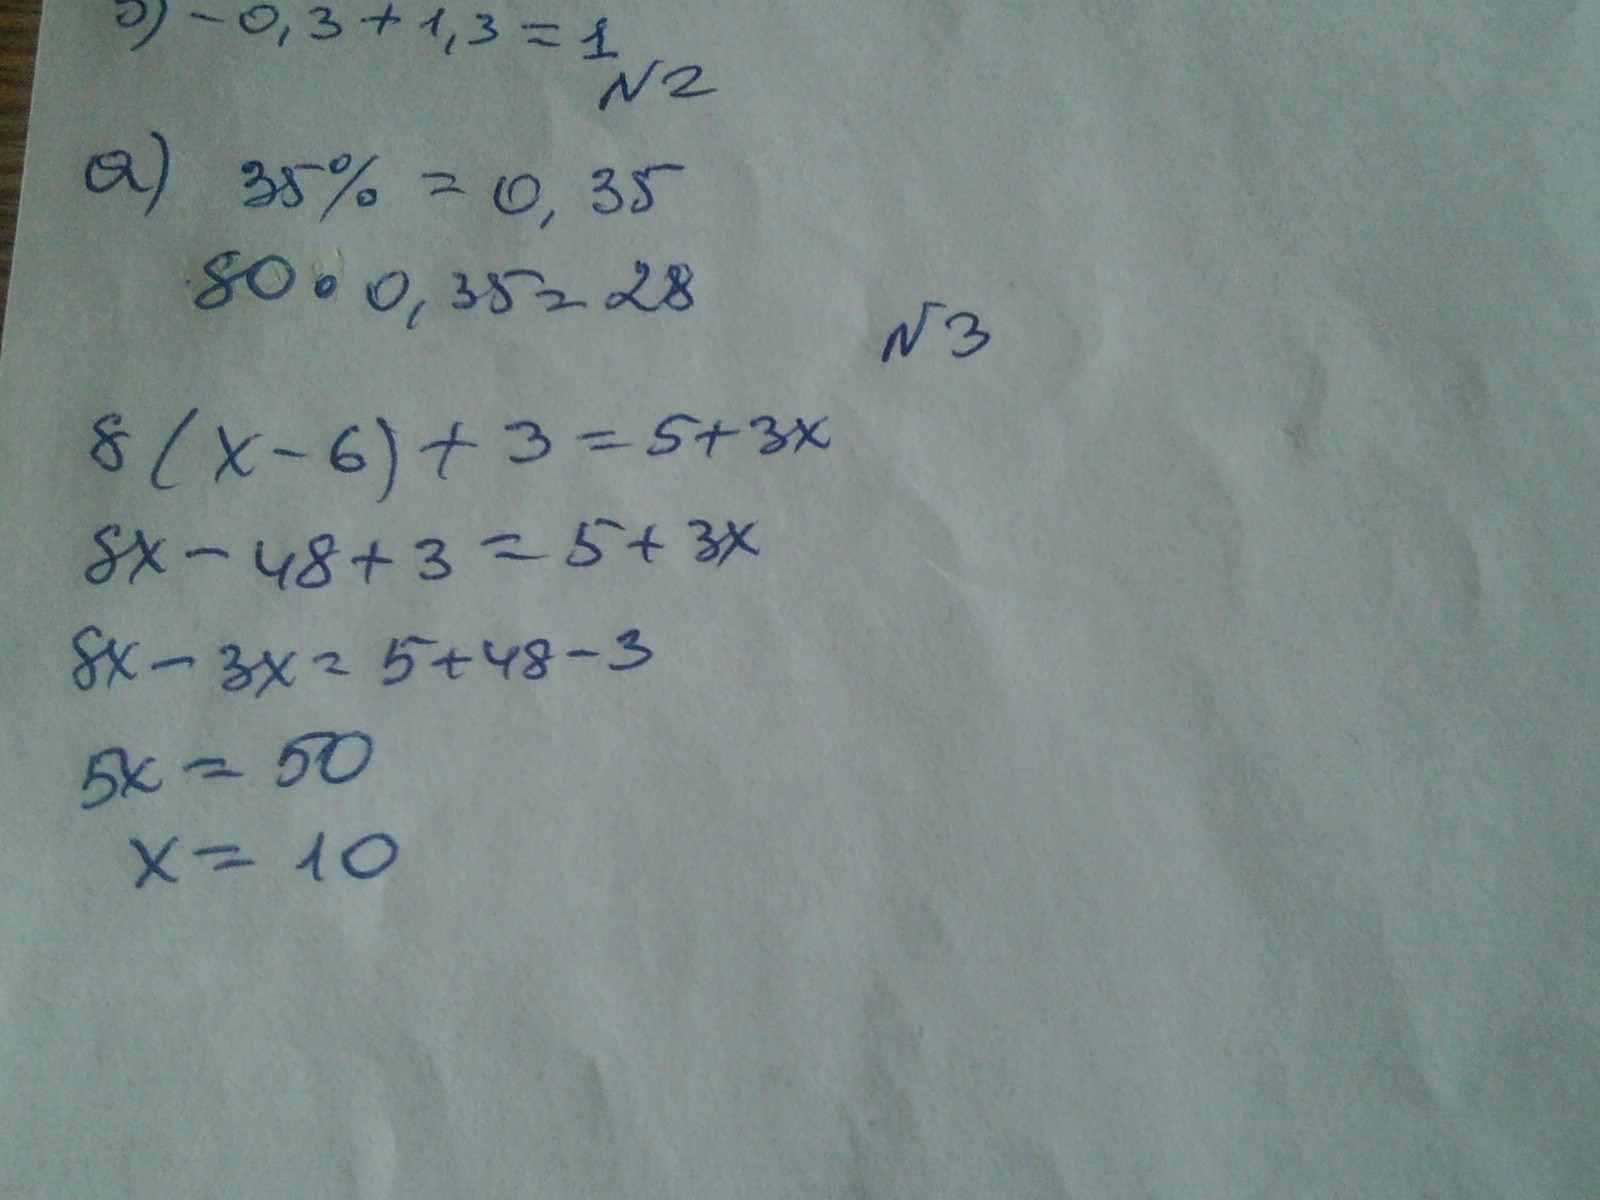 б) -0,3+1,3=1
N2
а) 35% = 0,35
80·0,35=28
N3
8(x-6)+3=5+3x
8x-48+3=5+3x
8x-3x=5+48-3
5x=50
x=10